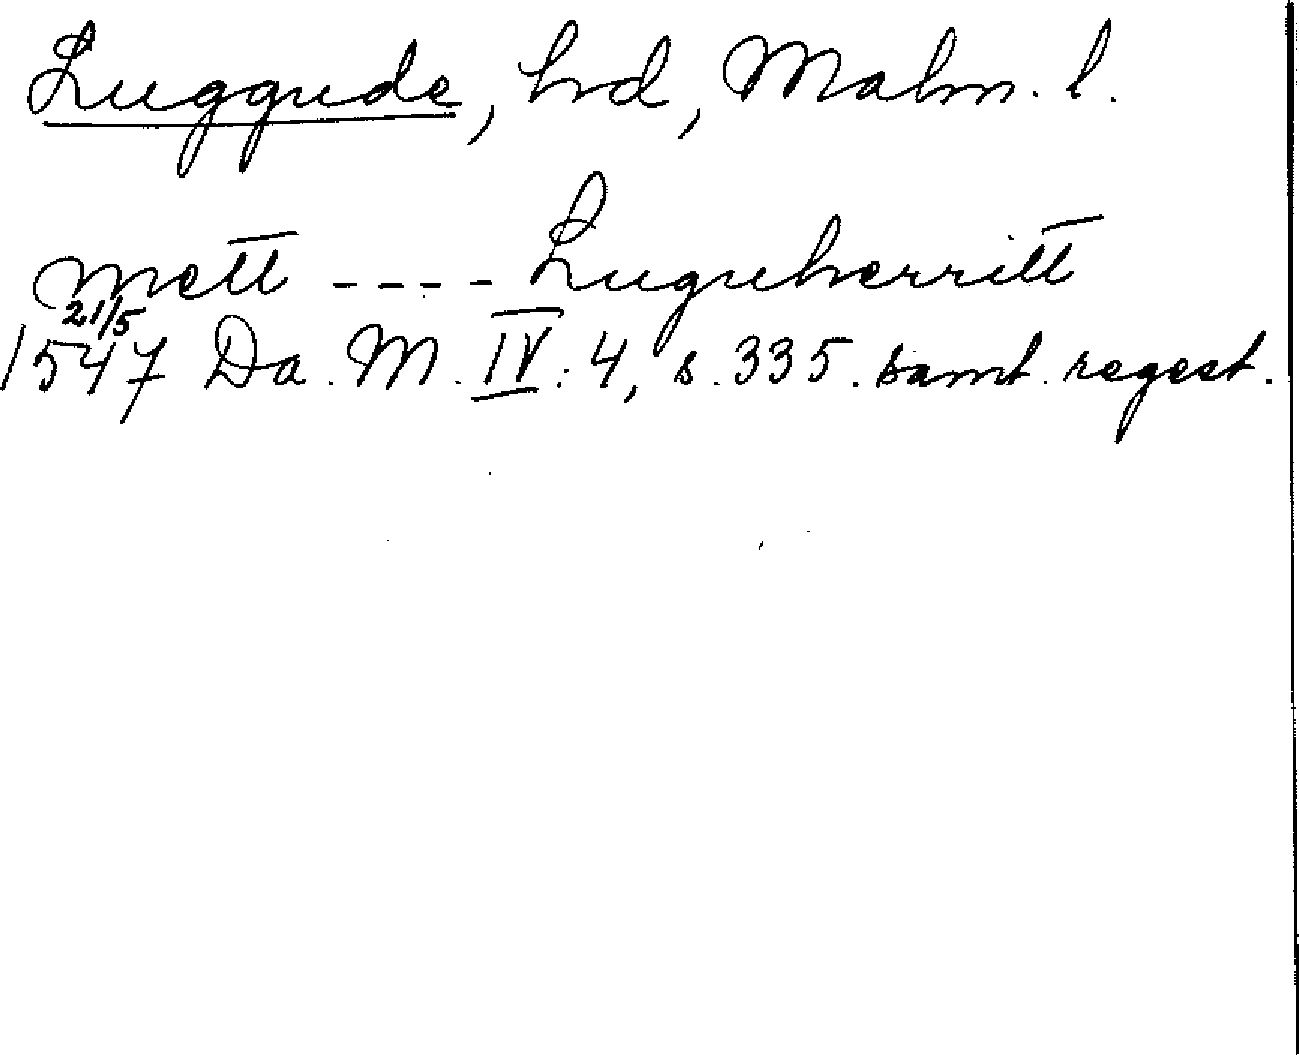 Luggude, hrd, Malm. l.
mett ---- Luguherritt
21/5
1547 Da. M. IV: 4, s. 335. samt. regest.